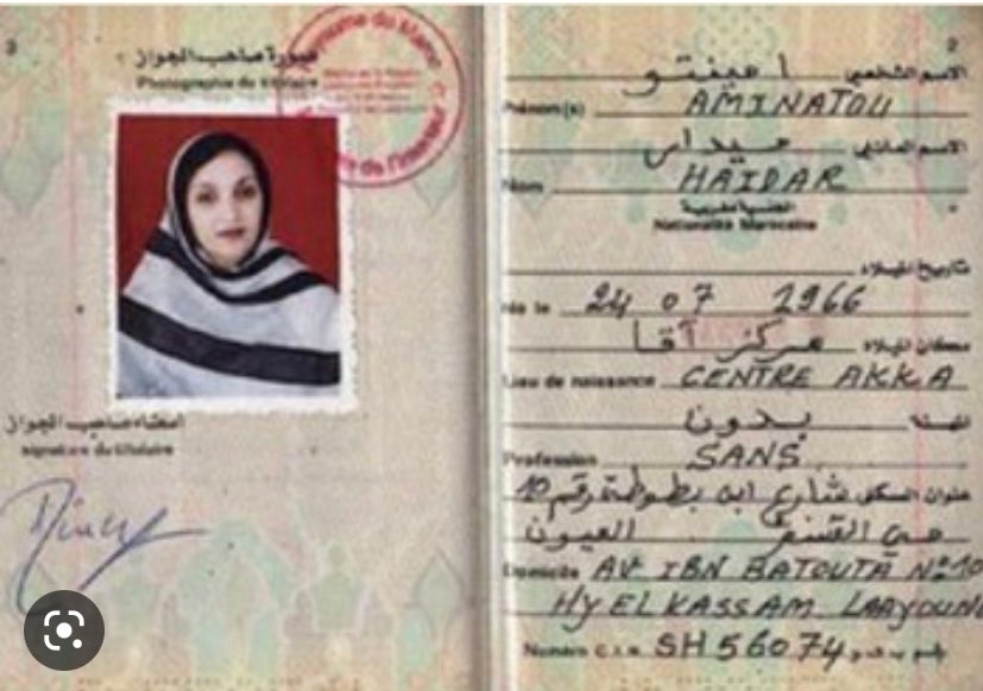 3
صورة صاحب الجواز
Photographie du titulaire
Royaume du Maroc
de l'Intérieur
امضاء صاحب الجواز
Signature du titulaire
2
الاسم الشخصي امينتو
Prénom(s) AMINATOU
الاسم العائلي حيدار
Nom HAIDAR
الجنسية مغربية
Nationalité Marocaine
تاريخ الميلاد
Né le 24 07 1966
مكان الميلاد مركز آقا
Lieu de naissance CENTRE AKKA
المهنة بدون
Profession SANS
عنوان السكنى شارع ابن بطوطة رقم 10
حي القسم العيون
Domicile AV IBN BATOUTA N° 10
HY EL KASSAM LAAYOUNE
Numéro C.I.N. SH 56074